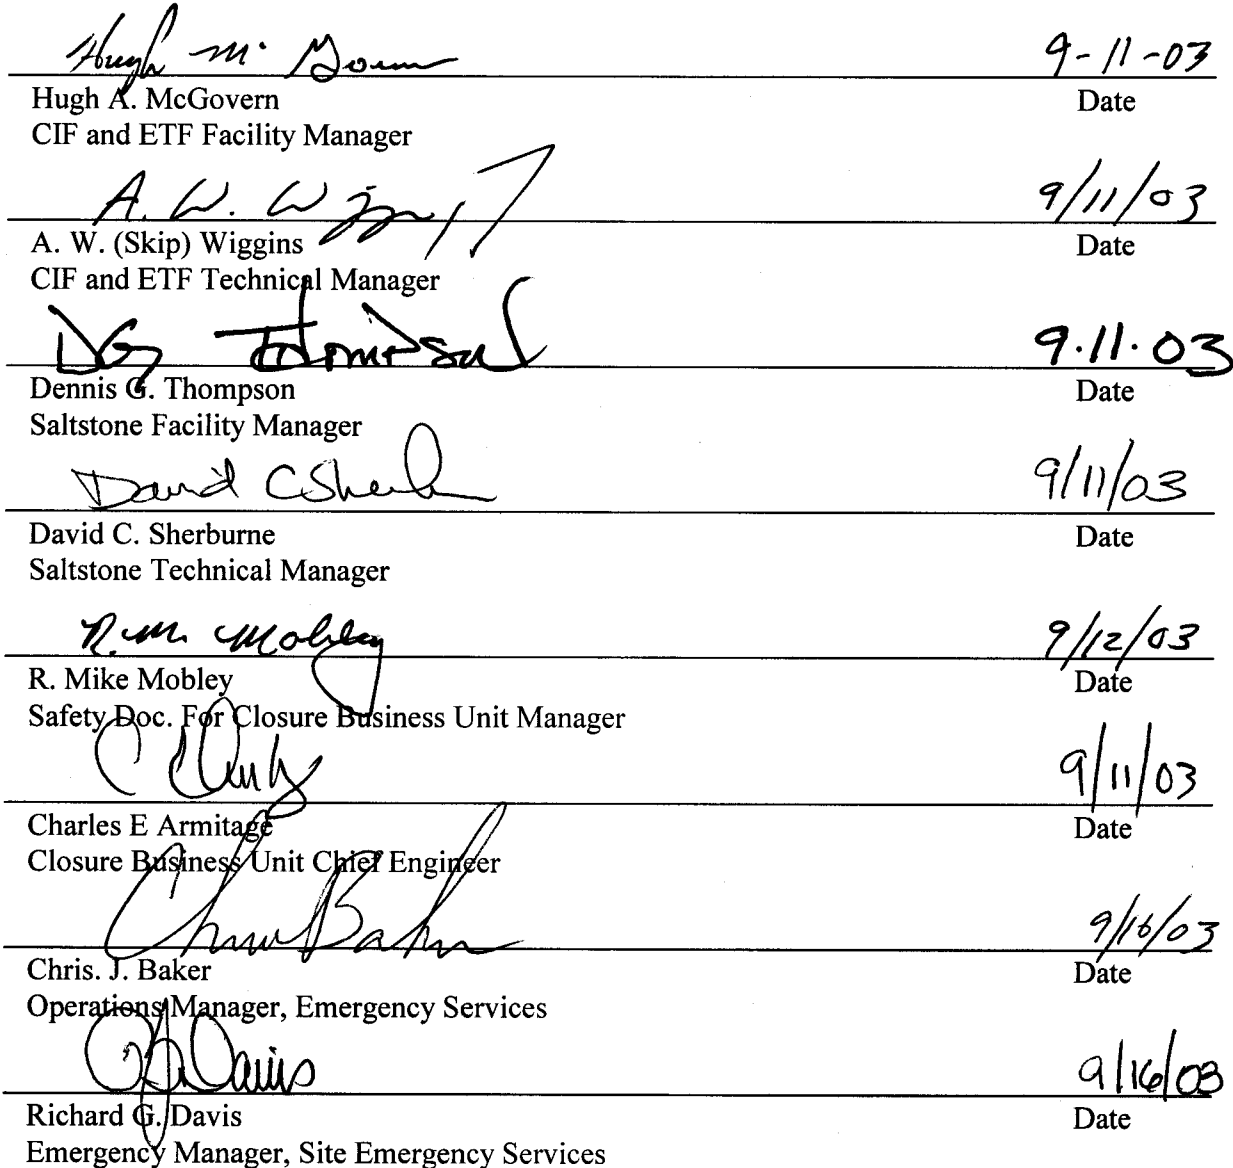 Hugh Mc Govern 9-11-03
Hugh A. McGovern Date
CIF and ETF Facility Manager
A. W. Wiggins 9/11/03
A. W. (Skip) Wiggins Date
CIF and ETF Technical Manager
DG Thompson 9.11.03
Dennis G. Thompson Date
Saltstone Facility Manager
David C Sherburne 9/11/03
David C. Sherburne Date
Saltstone Technical Manager
R. M. Mobley 9/12/03
R. Mike Mobley Date
Safety Doc. For Closure Business Unit Manager
9/11/03
Charles E Armitage Date
Closure Business Unit Chief Engineer
Chris Baker 9/16/03
Chris. J. Baker Date
Operations Manager, Emergency Services
RG Davis 9/16/03
Richard G. Davis Date
Emergency Manager, Site Emergency Services